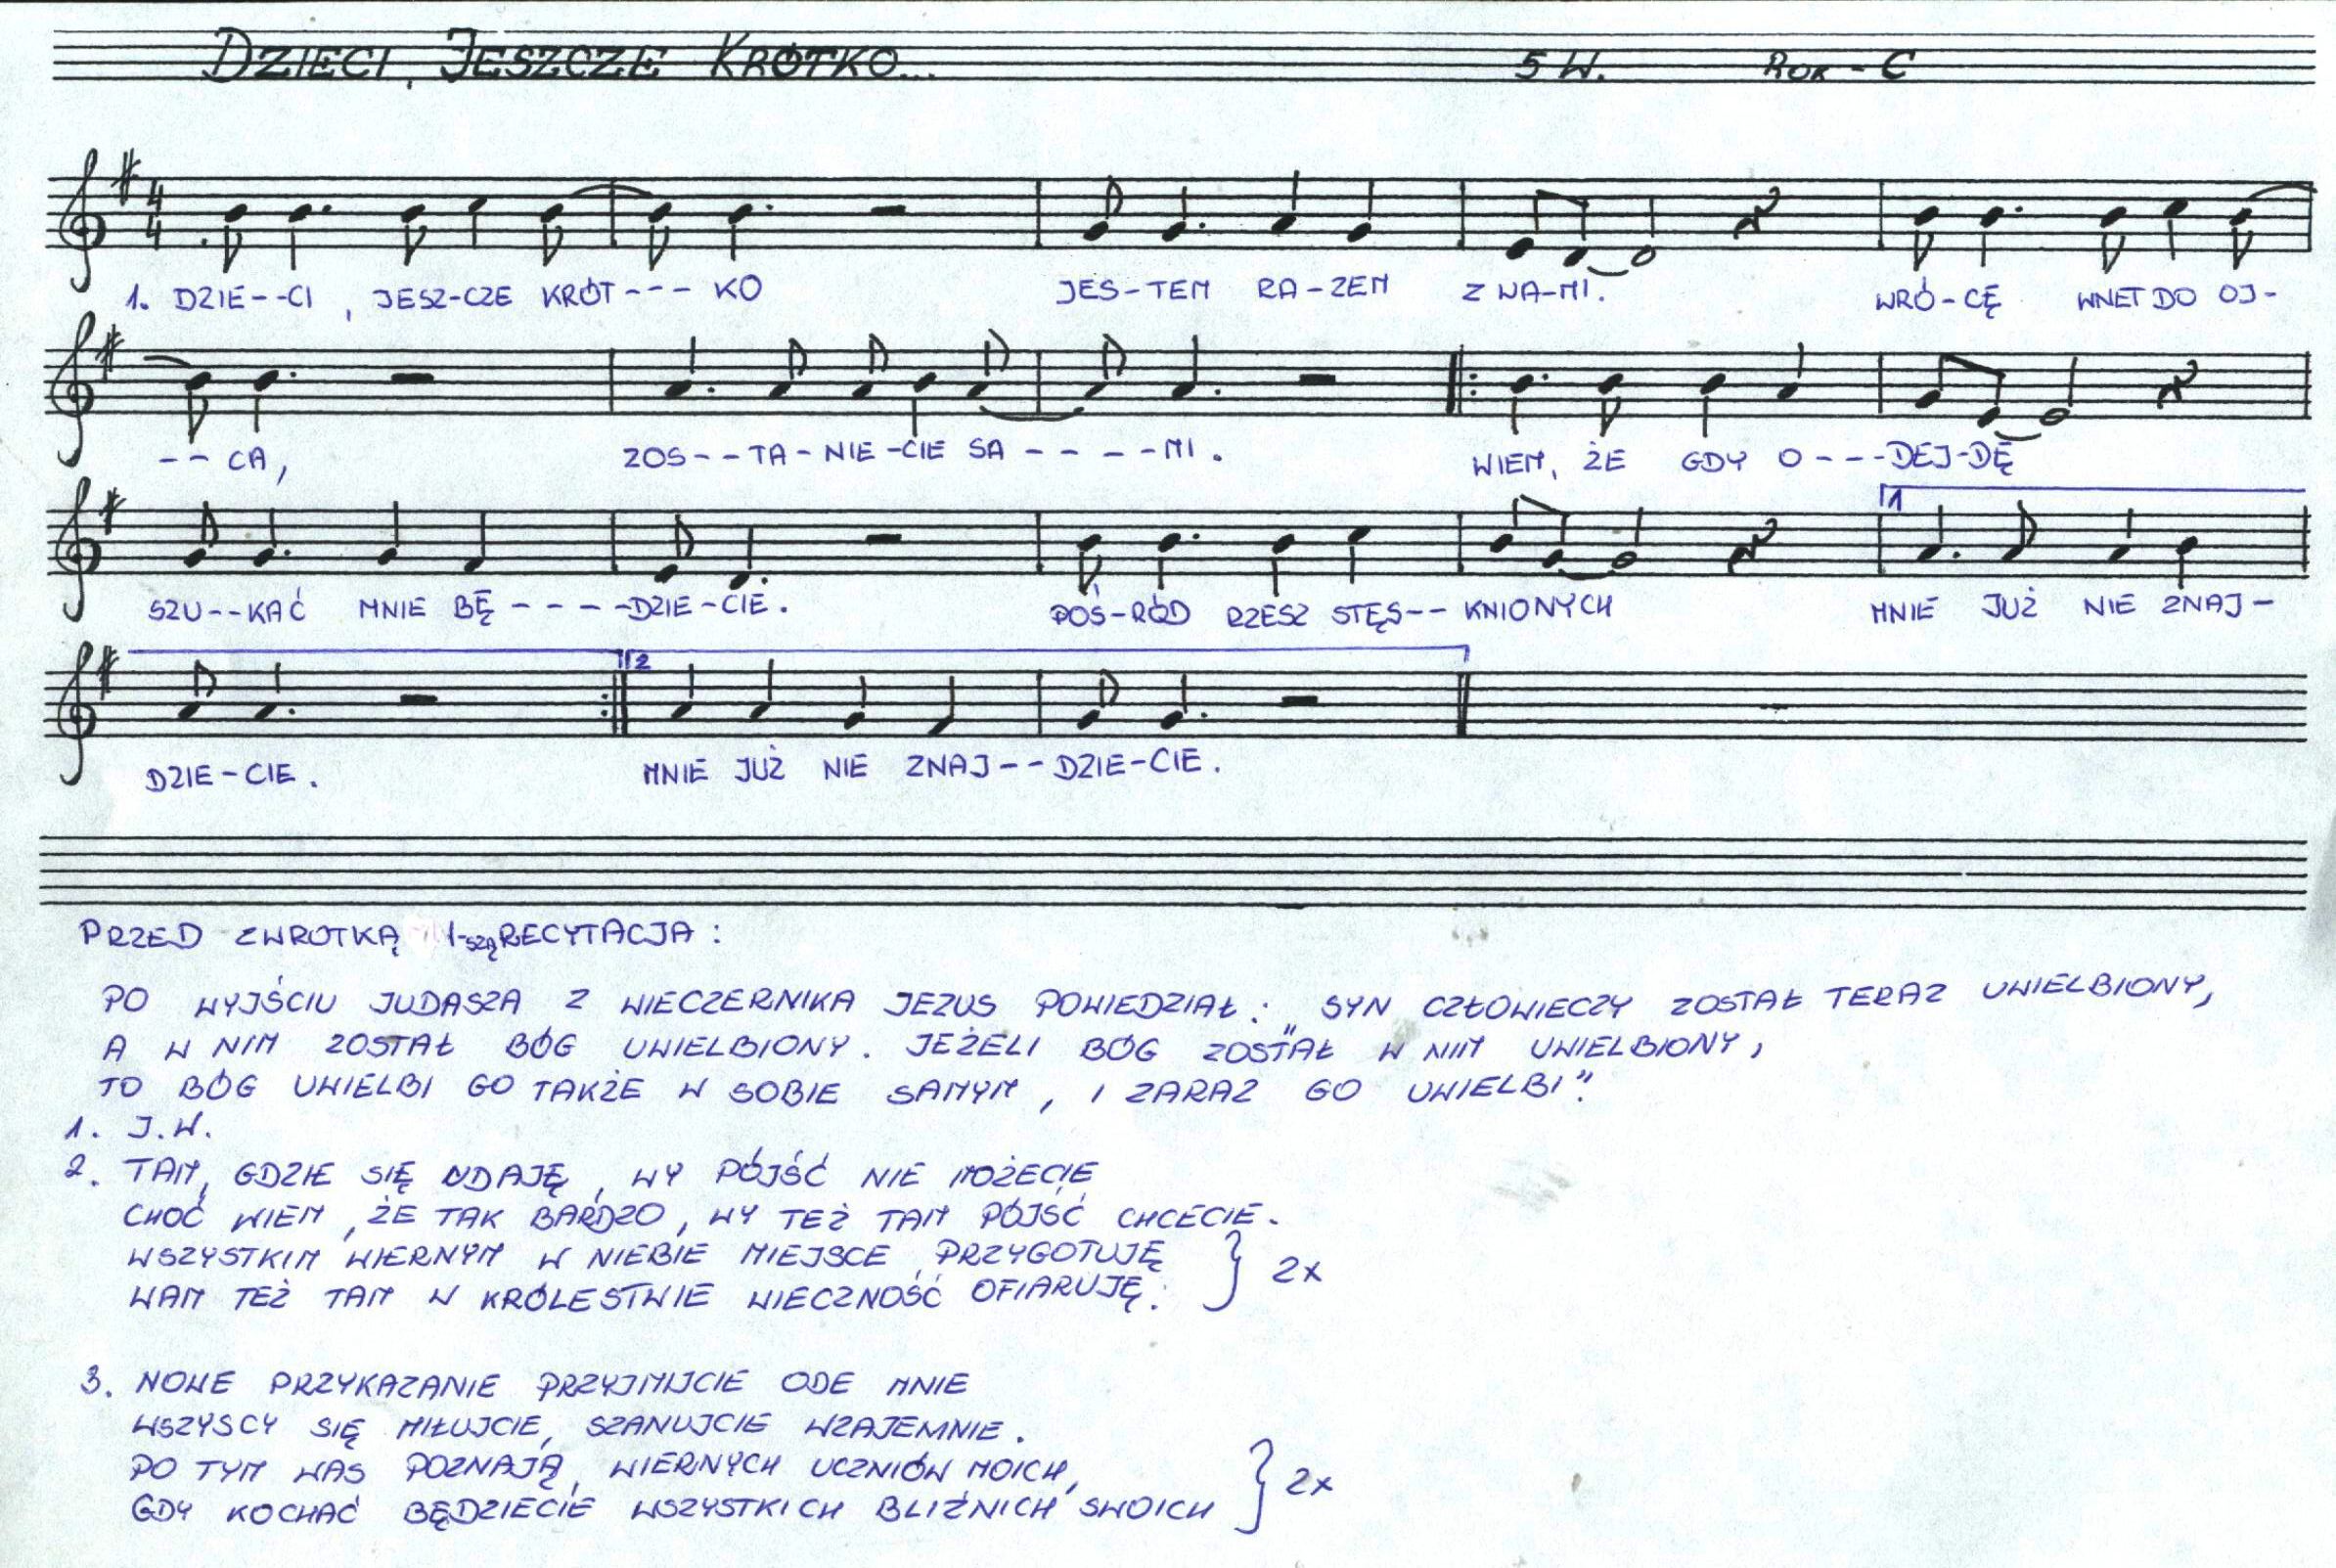 DZIECI, JESZCZE KRÓTKO... 5 W. ROK - C
4
4
1. DZIE--CI, JESZ-CZE KRÓT---KO JES-TEM RA-ZEM Z WA-MI. WRÓ-CĘ WNET DO OJ-
--CA, ZOS--TA-NIE-CIE SA----MI. WIEM, ŻE GDY O---DEJ-DĘ
1
SZU--KAĆ MNIE BĘ----DZIE-CIE. POŚ-RÓD RZESZ STĘS--KNIONYCH MNIE JUŻ NIE ZNAJ-
2
DZIE-CIE. MNIE JUŻ NIE ZNAJ--DZIE-CIE.
PRZED ZWROTKĄ 1-SZĄ RECYTACJA:
PO WYJŚCIU JUDASZA Z WIECZERNIKA JEZUS POWIEDZIAŁ: "SYN CZŁOWIECZY ZOSTAŁ TERAZ UWIELBIONY,
A W NIM ZOSTAŁ BÓG UWIELBIONY. JEŻELI BÓG ZOSTAŁ W NIM UWIELBIONY,
TO BÓG UWIELBI GO TAKŻE W SOBIE SAMYM, I ZARAZ GO UWIELBI".
1. J.W.
2. TAM, GDZIE SIĘ UDAJĘ, WY PÓJŚĆ NIE MOŻECIE
CHOĆ WIEM, ŻE TAK BARDZO, WY TEŻ TAM PÓJŚĆ CHCECIE.
WSZYSTKIM WIERNYM W NIEBIE MIEJSCE PRZYGOTUJĘ } 2x
WAM TEŻ TAM W KRÓLESTWIE WIECZNOŚĆ OFIARUJĘ.
3. NOWE PRZYKAZANIE PRZYJMIJCIE ODE MNIE
WSZYSCY SIĘ MIŁUJCIE, SZANUJCIE WZAJEMNIE.
PO TYM WAS POZNAJĄ, WIERNYCH UCZNIÓW MOICH, } 2x
GDY KOCHAĆ BĘDZIECIE WSZYSTKICH BLIŹNICH SWOICH